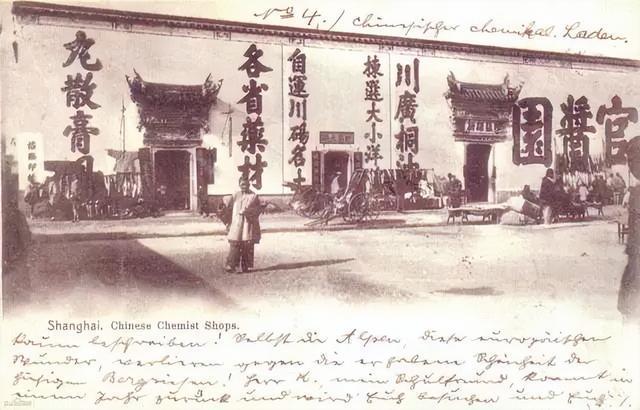 No 4.) chinesischer chemikal. Laden.
丸散膏
各省藥材
自運川名
揀選大小洋
川廣桐油
官醬園
Shanghai. Chinese Chemist Shops.
kaum beschreiben! Selbst die Alpen, diese europäischen
Wunder, verlieren gegen die erhabene Schönheit der
hiesigen Bergriesen! Herr K., mein Schulfreund, kommt in
einem Jahr zurück und wird Euch besuchen und Euch